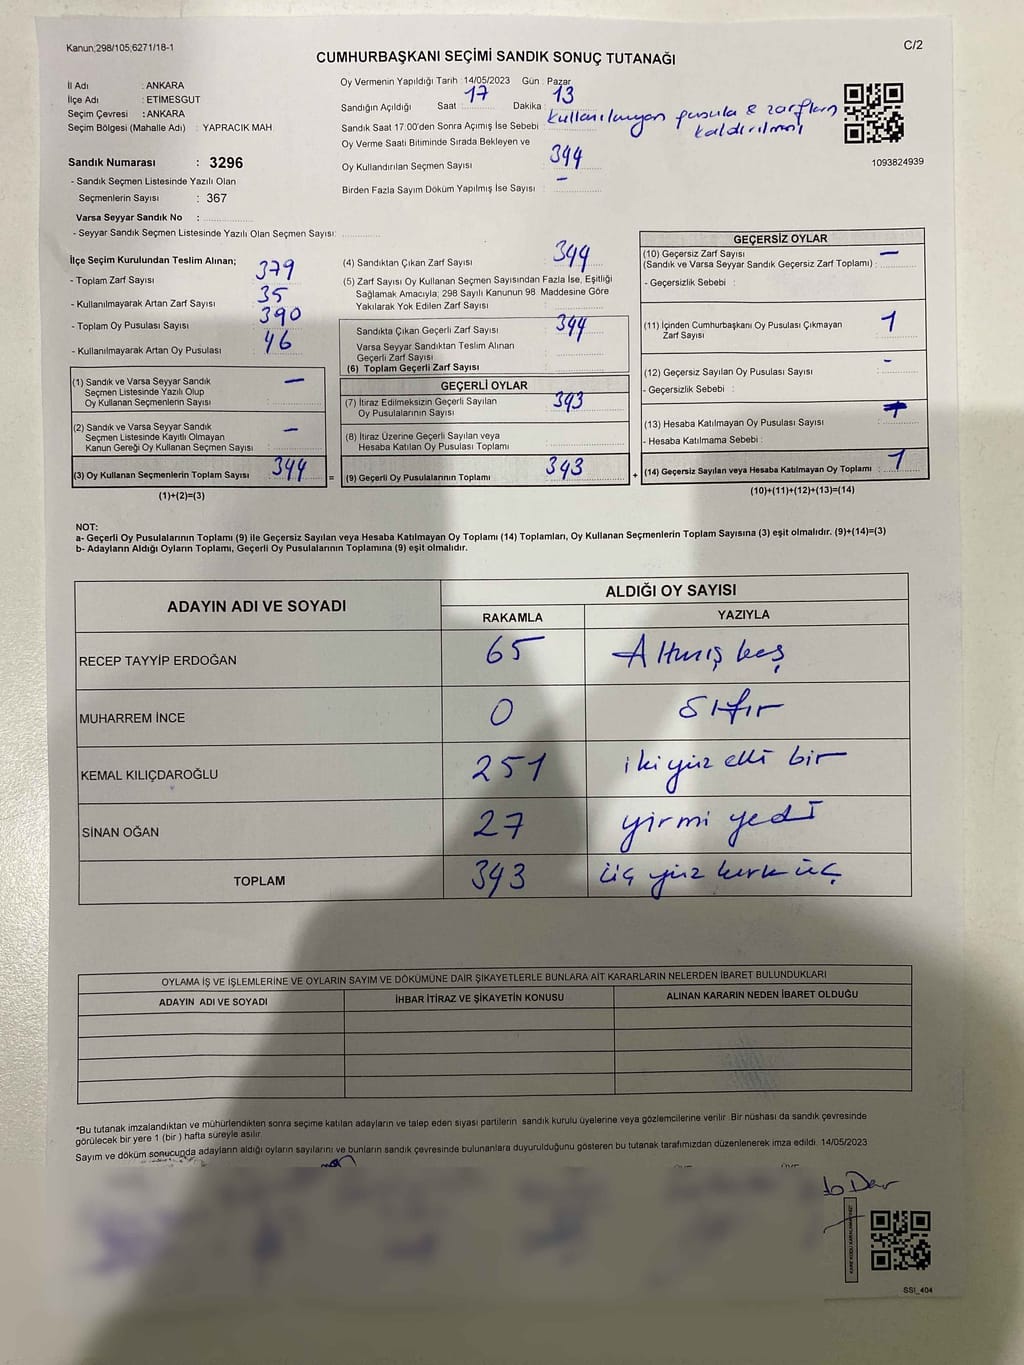 Kanun;298/105,6271/18-1
C/2
CUMHURBAŞKANI SEÇİMİ SANDIK SONUÇ TUTANAĞI
İl Adı : ANKARA
İlçe Adı : ETİMESGUT
Seçim Çevresi : ANKARA
Seçim Bölgesi (Mahalle Adı) : YAPRACIK MAH
Sandık Numarası : 3296
- Sandık Seçmen Listesinde Yazılı Olan
Seçmenlerin Sayısı : 367
Varsa Seyyar Sandık No :
- Seyyar Sandık Seçmen Listesinde Yazılı Olan Seçmen Sayısı:
Oy Vermenin Yapıldığı Tarih : 14/05/2023 Gün : Pazar
Sandığın Açıldığı Saat : 17 Dakika : 13
Sandık Saat 17:00'den Sonra Açımış İse Sebebi : kullanılmayan pusula & zarfların kaldırılması
Oy Verme Saati Bitiminde Sırada Bekleyen ve
Oy Kullandırılan Seçmen Sayısı : 344
Birden Fazla Sayım Döküm Yapılmış İse Sayısı : -
1093824939
İlçe Seçim Kurulundan Teslim Alınan;
- Toplam Zarf Sayısı : 379
- Kullanılmayarak Artan Zarf Sayısı : 35
- Toplam Oy Pusulası Sayısı : 390
- Kullanılmayarak Artan Oy Pusulası : 46
(1) Sandık ve Varsa Seyyar Sandık
Seçmen Listesinde Yazılı Olup
Oy Kullanan Seçmenlerin Sayısı : -
(2) Sandık ve Varsa Seyyar Sandık
Seçmen Listesinde Kayıtlı Olmayan
Kanun Gereği Oy Kullanan Seçmen Sayısı : -
(3) Oy Kullanan Seçmenlerin Toplam Sayısı : 344 =
(1)+(2)=(3)
(4) Sandıktan Çıkan Zarf Sayısı : 344
(5) Zarf Sayısı Oy Kullanan Seçmen Sayısından Fazla İse, Eşitliği
Sağlamak Amacıyla; 298 Sayılı Kanunun 98. Maddesine Göre
Yakılarak Yok Edilen Zarf Sayısı :
Sandıkta Çıkan Geçerli Zarf Sayısı : 344
Varsa Seyyar Sandıktan Teslim Alınan
Geçerli Zarf Sayısı :
(6) Toplam Geçerli Zarf Sayısı :
GEÇERLİ OYLAR
(7) İtiraz Edilmeksizin Geçerli Sayılan
Oy Pusulalarının Sayısı : 343
(8) İtiraz Üzerine Geçerli Sayılan veya
Hesaba Katılan Oy Pusulası Toplamı :
(9) Geçerli Oy Pusulalarının Toplamı : 343 +
GEÇERSİZ OYLAR
(10) Geçersiz Zarf Sayısı
(Sandık ve Varsa Seyyar Sandık Geçersiz Zarf Toplamı) : -
- Geçersizlik Sebebi :
(11) İçinden Cumhurbaşkanı Oy Pusulası Çıkmayan
Zarf Sayısı : 1
(12) Geçersiz Sayılan Oy Pusulası Sayısı : -
- Geçersizlik Sebebi :
(13) Hesaba Katılmayan Oy Pusulası Sayısı :
- Hesaba Katılmama Sebebi :
(14) Geçersiz Sayılan veya Hesaba Katılmayan Oy Toplamı : 1
(10)+(11)+(12)+(13)=(14)
NOT:
a- Geçerli Oy Pusulalarının Toplamı (9) ile Geçersiz Sayılan veya Hesaba Katılmayan Oy Toplamı (14) Toplamları, Oy Kullanan Seçmenlerin Toplam Sayısına (3) eşit olmalıdır. (9)+(14)=(3)
b- Adayların Aldığı Oyların Toplamı, Geçerli Oy Pusulalarının Toplamına (9) eşit olmalıdır.
ADAYIN ADI VE SOYADI ALDIĞI OY SAYISI
RAKAMLA YAZIYLA
RECEP TAYYİP ERDOĞAN 65 Altmış beş
MUHARREM İNCE 0 Sıfır
KEMAL KILIÇDAROĞLU 251 iki yüz elli bir
SİNAN OĞAN 27 yirmi yedi
TOPLAM 343 üç yüz kırk üç
OYLAMA İŞ VE İŞLEMLERİNE VE OYLARIN SAYIM VE DÖKÜMÜNE DAİR ŞİKAYETLERLE BUNLARA AİT KARARLARIN NELERDEN İBARET BULUNDUKLARI
ADAYIN ADI VE SOYADI İHBAR İTİRAZ VE ŞİKAYETİN KONUSU ALINAN KARARIN NEDEN İBARET OLDUĞU
*Bu tutanak imzalandıktan ve mühürlendikten sonra seçime katılan adayların ve talep eden siyasi partilerin sandık kurulu üyelerine veya gözlemcilerine verilir. Bir nüshası da sandık çevresinde
görülecek bir yere 1 (bir) hafta süreyle asılır.
Sayım ve döküm sonucunda adayların aldığı oyların sayılarını ve bunların sandık çevresinde bulunanlara duyurulduğunu gösteren bu tutanak tarafımızdan düzenlenerek imza edildi. 14/05/2023
SSI_404